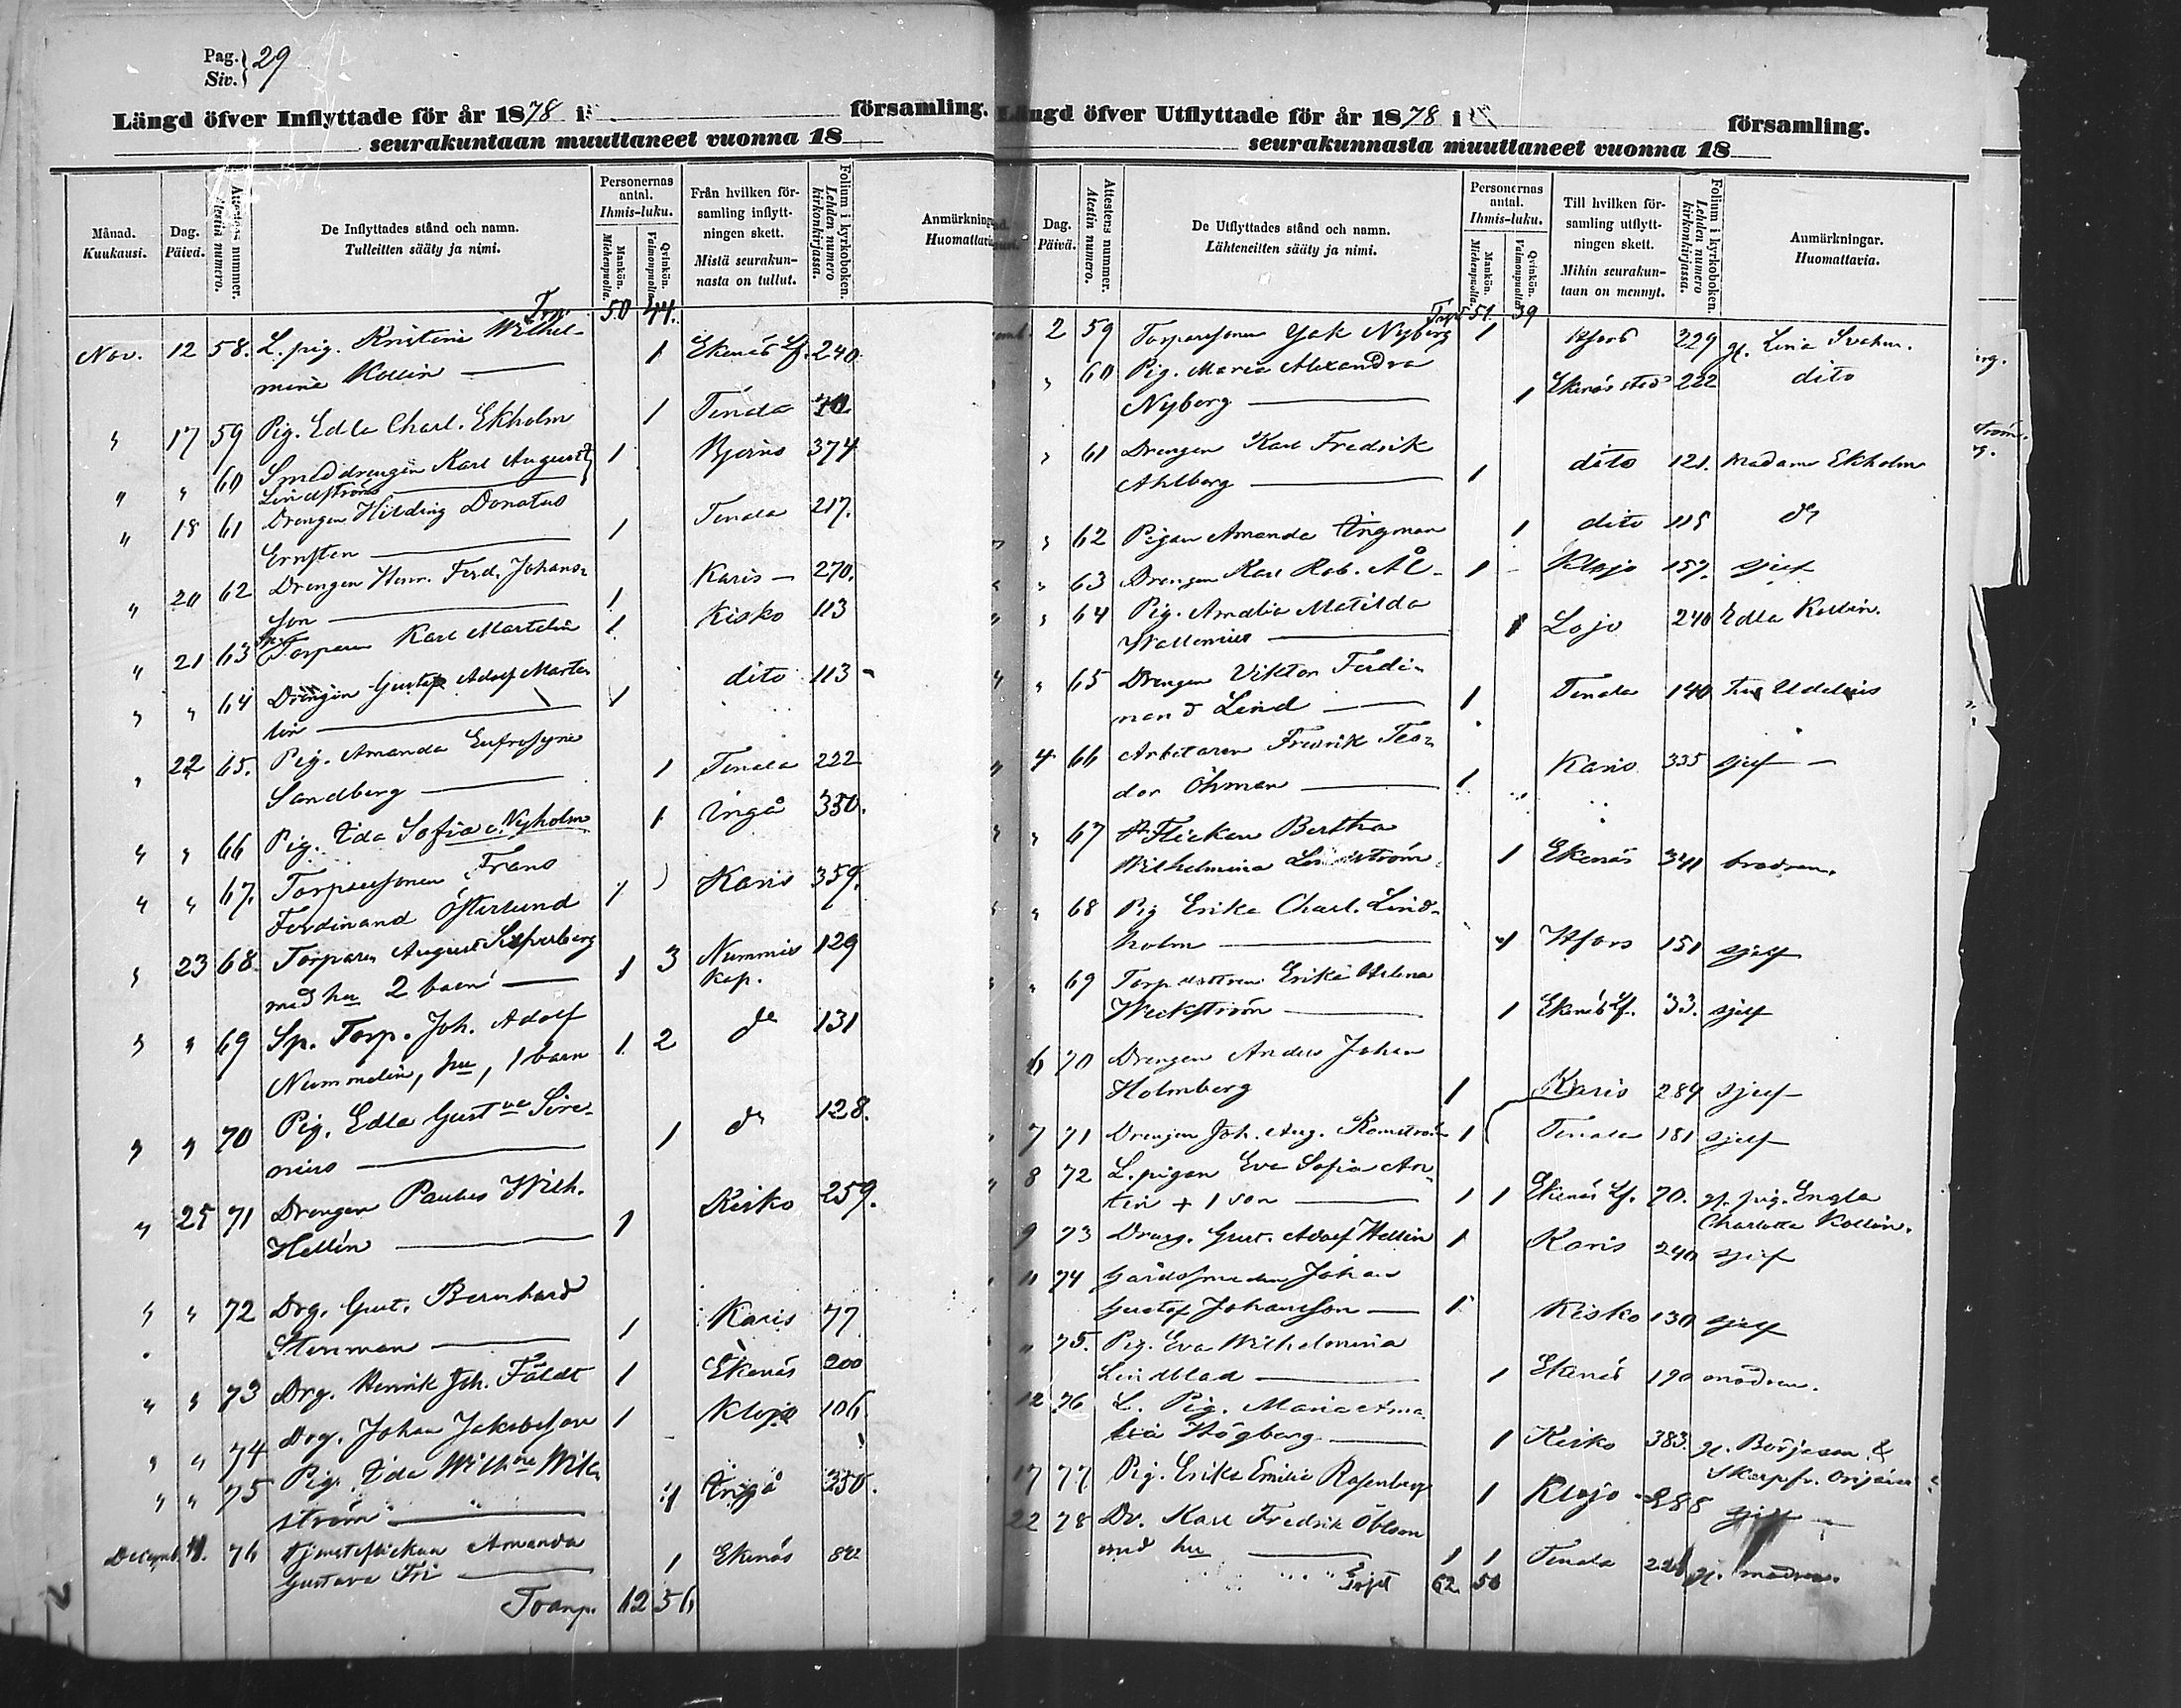 Pag. 29
Siv.
Längd öfver Inflyttade för år 1878 i församling.
seurakuntaan muuttaneet vuonna 18
Månad.
Kuukausi.
Dag.
Päivä.
Attestens nummer.
Atestin numero.
De Inflyttades stånd och namn.
Tulleitten sääty ja nimi.
Personernas antal.
Ihmis-luku.
Mankön.
Miehenpuolta.
Qvinkön.
Vaimonpuolta.
Från hvilken för-
samling inflytt-
ningen skett.
Mistä seurakun-
nasta on tullut.
Folium i kyrkoboken.
Lehden numero
kirkonkirjassa.
Anmärkning
Huomattavia
50 44.
Nov. 12 58. L. pig. Kristina Wilhel-
mina Kollin — 1 Ekenäs Lf. 240
" 17 59 Pig. Edla Charl. Ekholm 1 Tenala 70
" " 60 Smeddrengen Karl August
Lindström 1 Bjerno 374
" 18 61 Drengen Hilding Donatus
Ernsten — 1 Tenala 217.
" 20 62 Drengen Henr. Ferd. Johans-
son — 1 Karis — 270.
" 21 63 Torparen Karl Martelin 1 Kisko 113
" " 64 Drengen Gustaf Adolf Marte-
lin — 1 dito 113
" 22 65. Pig. Amanda Eufrosyne
Sandberg — 1 Tenala 222
" " 66 Pig. Ida Sofia Nyholm 1 Ingå 350.
" " 67. Torparesonen Frans
Ferdinand Österlund 1 Karis 359.
" 23 68. Torparen August Silfverberg
med hu 2 barn — 1 3 Nummis
Kap. 129
" " 69 Sp. Torp. Joh. Adolf
Nummelin, hu, 1 barn 1 2 do 131
" " 70 Pig. Edla Gustva Sire-
nius — 1 do 128.
" 25 71 Drengen Paulus Wilh.
Hellén — 1 Kisko 259.
" " 72 Drg. Gust. Bernhard
Stenman — 1 Karis 77
" " 73 Drg. Henrik Joh. Fäldt 1 Ekenäs 200
" " 74 Drg. Johan Jakobsson 1 Klojo 106
" " 75 Pig. Ida Wilhna Wik-
ström — 1 Ingå 350.
Decemb. 76 Tjensteflickan Amanda
Gustava Fri — 1 Ekenäs
Transp. 62 56
Längd öfver Utflyttade för år 1878 i församling.
seurakunnasta muuttaneet vuonna 18
Dag.
Päivä.
Attestens nummer.
Atestin numero.
De Utflyttades stånd och namn.
Lähteneitten sääty ja nimi.
Personernas antal.
Ihmis-luku.
Mankön.
Miehenpuolta.
Qvinkön.
Vaimonpuolta.
Till hvilken för-
samling utflytt-
ningen skett.
Mihin seurakun-
taan on mennyt.
Folium i kyrkoboken.
Lehden numero
kirkonkirjassa.
Anmärkningar.
Huomattavia.
51 39
2 59 Torparesonen Isak Nyberg 1 Hfors 229 gl. Lina Svahn.
" 60 Pig. Maria Alexandra
Nyberg — 1 Ekenäs stad 222 dito
" 61 Drengen Karl Fredrik
Ahlberg — 1 dito 121. Madam Ekholm
" 62 Pigan Amanda Engman 1 dito 115 do
" 63 Drengen Karl Rob. Ål- 1 Klojo 157. sjelf
" 64 Pig. Amalia Matilda
Wallenius — 1 Lojo 240 Edla Kollin.
" 65 Drengen Viktor Ferdi-
nand Lind — 1 Tenala 140
4 66 Arbetaren Fredrik Teo-
dor Öhman — 1 Karis 335 sjelf —
" 67 Flickan Bertha
Wilhelmina Lindström 1 Ekenäs 341 brodren.
" 68 Pig Erika Charl. Lind-
holm — 1 Hfors 151 sjelf
" 69 Torpdottren Erika Helena
Weckström — 1 Ekenäs Lf. 33. sjelf
6 70 Drengen Anders Johan
Holmberg 1 Karis 289 sjelf
7 71 Drengen Joh. Aug. Ramström 1 Tenala 181 sjelf
8 72 L. pigan Eva Sofia An-
tin + 1 son — 1 1 Ekenäs Lf. 70. gl. pig. Engla
Charlotta Kollin.
9 73 Dreng. Gust. Adolf Hellin 1 Karis 240 sjelf
11 74 Gårdssmeden Johan
Gustaf Johansson — 1 Kisko 130 sjelf
" 75. Pig. Eva Wilhelmina
Lindblad — 1 Ekenäs 190 modren.
12 76 L. Pig. Maria Ama-
lia Högberg — 1 Kisko 383. gl. Börjeson &
17 77 Pig. Erika Emilia Rosenberg 1 Klojo 288 sjelf
22 78 Dr. Karl Fredrik Öhlson
med hu — 1 1 Tenala gl. modren.
62 50